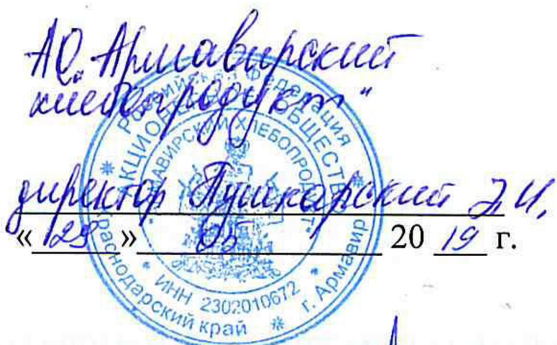 АО „Армавирский
хлебопродукт"
директор Пушкарский Э.И.
« 29 » 20 19 г.
Российская Федерация
АКЦИОНЕРНОЕ ОБЩЕСТВО
АРМАВИРСКИЙ ХЛЕБОПРОДУКТ
ИНН 2302010672
Краснодарский край * г. Армавир *